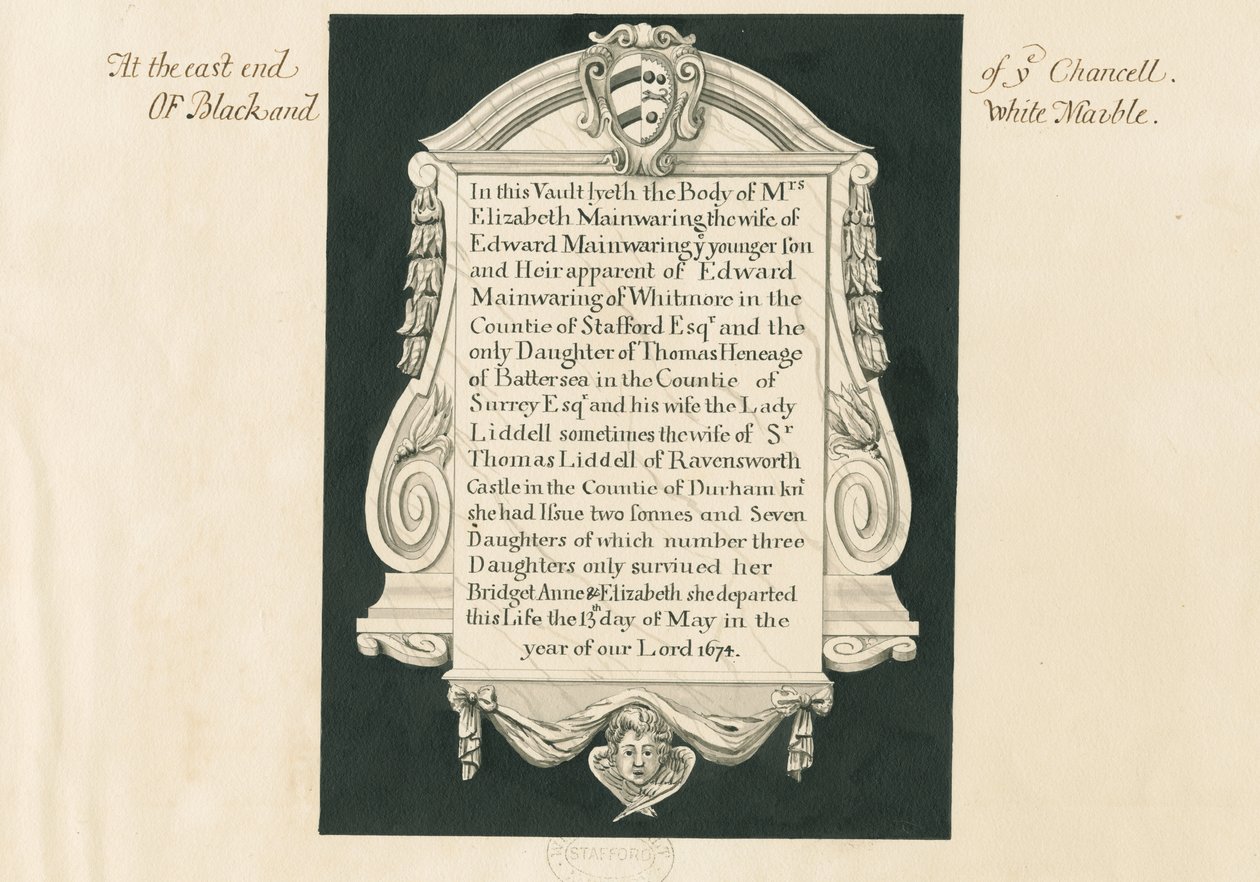 At the east end of yᵉ Chancell.
OF Black and White Marble.
In this Vault lyeth the Body of Mʳˢ
Elizabeth Mainwaring the wife of
Edward Mainwaring yᵉ younger ſon
and Heir apparent of Edward
Mainwaring of Whitmore in the
Countie of Stafford Esqʳ and the
only Daughter of Thomas Heneage
of Battersea in the Countie of
Surrey Esqʳ and his wife the Lady
Liddell sometimes the wife of Sʳ
Thomas Liddell of Ravensworth
Castle in the Countie of Durham knᵗ
she had Iſsue two ſonnes and Seven
Daughters of which number three
Daughters only surviued her
Bridget Anne & Elizabeth she departed
this Life the 13ᵗʰ day of May in the
year of our Lord 1674.
STAFFORD